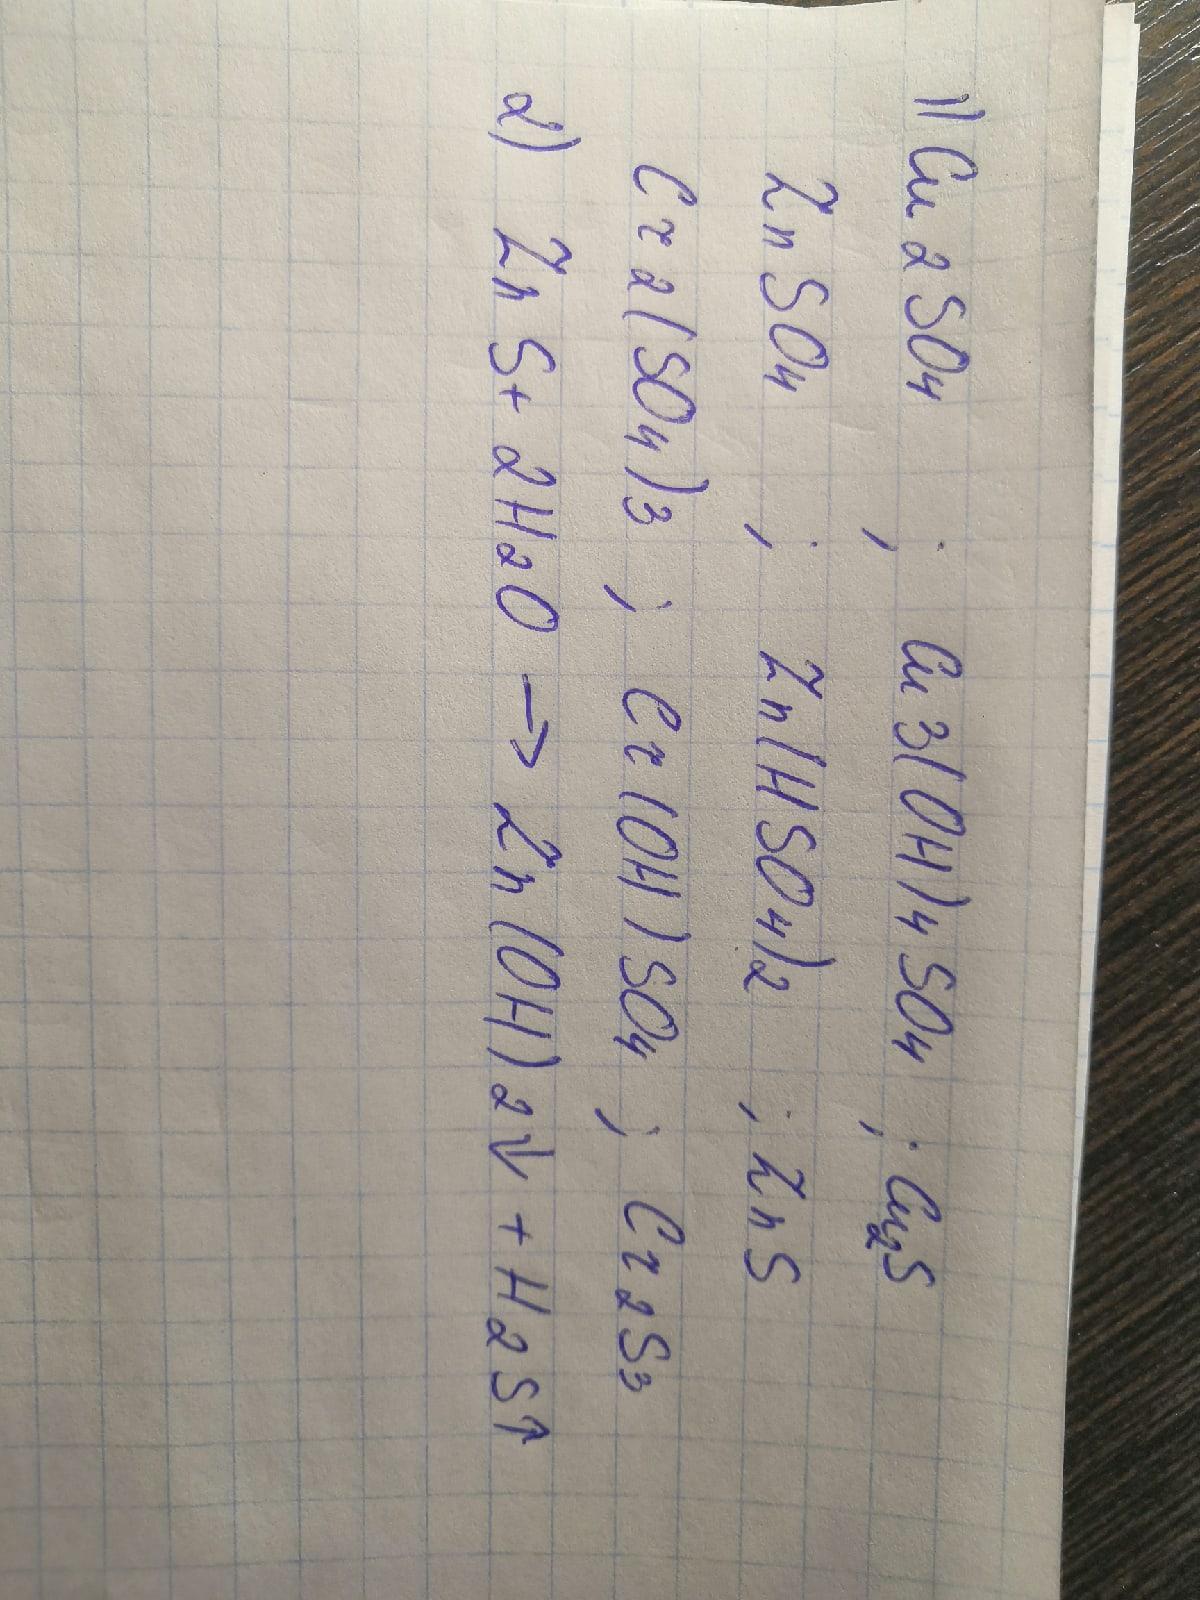 1) Cu2SO4 ; Cu3(OH)4SO4 ; Cu2S
ZnSO4 ; Zn(HSO4)2 ; ZnS
Cr2(SO4)3 ; Cr(OH)SO4 ; Cr2S3
2) ZnS + 2H2O → Zn(OH)2↓ + H2S↑